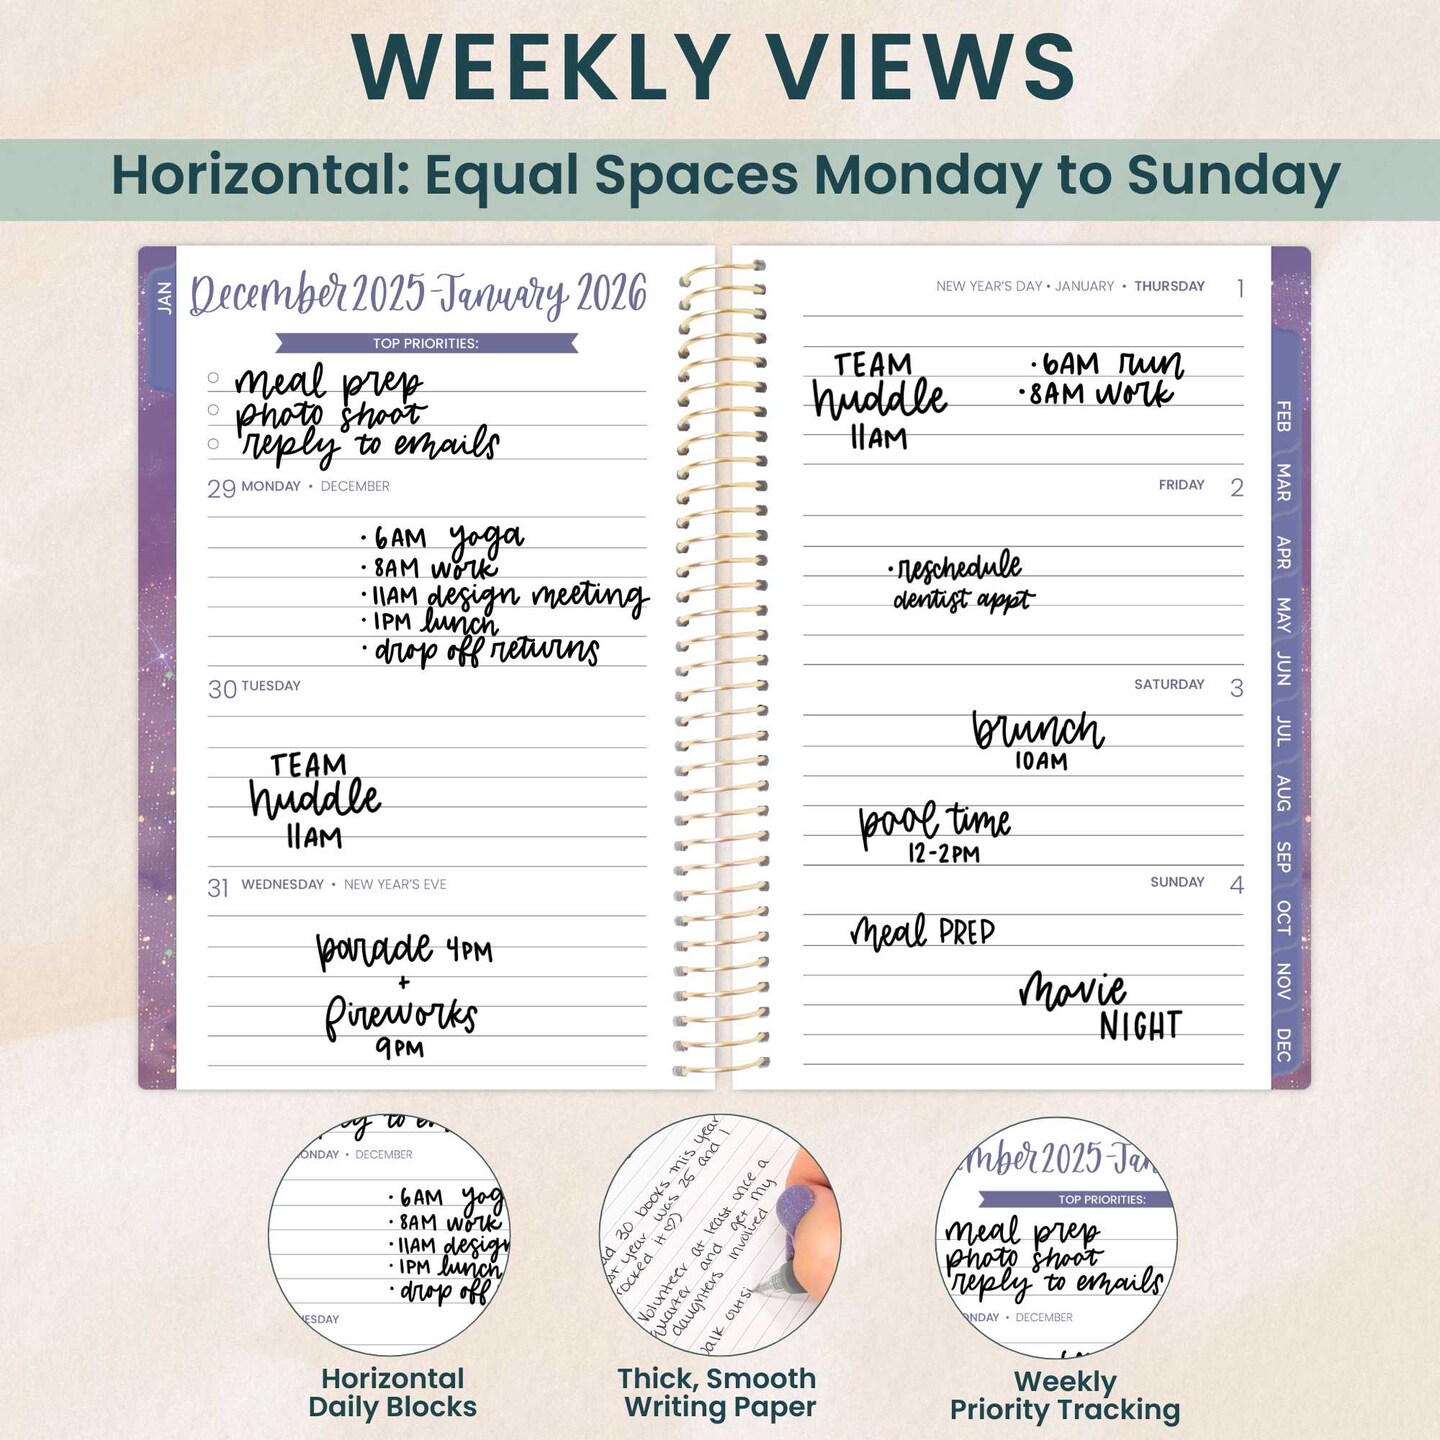 WEEKLY VIEWS
Horizontal: Equal Spaces Monday to Sunday
JAN
December 2025-January 2026
TOP PRIORITIES:
meal prep
photo shoot
reply to emails
29 MONDAY • DECEMBER
• 6AM yoga
• 8AM work
• 11AM design meeting
• 1PM lunch
• drop off returns
30 TUESDAY
TEAM
huddle
11AM
31 WEDNESDAY • NEW YEAR'S EVE
parade 4PM
+
fireworks
9PM
NEW YEAR'S DAY • JANUARY • THURSDAY 1
TEAM
huddle
11AM
• 6AM run
• 8AM work
FRIDAY 2
• reschedule
dentist appt
SATURDAY 3
brunch
10AM
pool time
12-2PM
SUNDAY 4
meal PREP
movie
NIGHT
FEB
MAR
APR
MAY
JUN
JUL
AUG
SEP
OCT
NOV
DEC
ONDAY • DECEMBER
• 6AM yog
• 8AM work
• 11AM design
• 1PM lunch
• drop off
ESDAY
Horizontal
Daily Blocks
30 books this year
year was 25 and I
rocked it
Volunteer at least once a
quarter and get my
daughters involved
Thick, Smooth
Writing Paper
mber 2025-Jan
TOP PRIORITIES:
meal prep
photo shoot
reply to emails
ONDAY • DECEMBER
Weekly
Priority Tracking